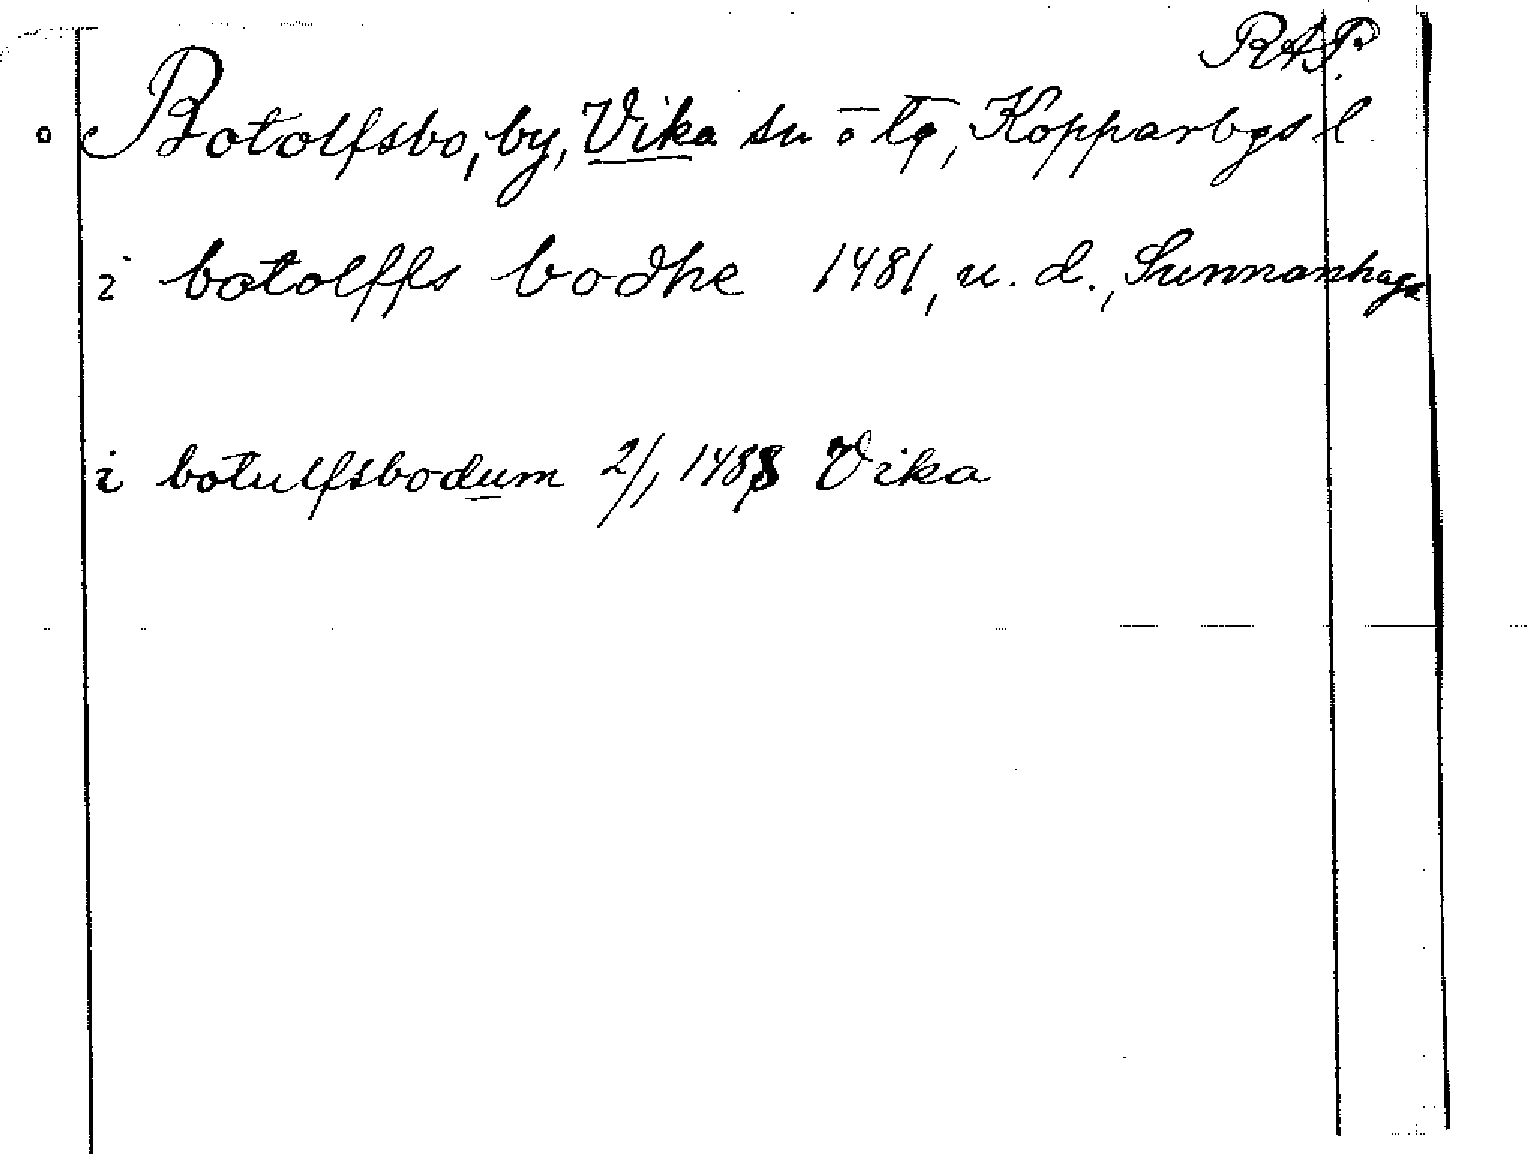 RAP.
Botolfsbo, by, Vika sn o tg, Kopparbgs l
i botolffs bodhe 1481, u. d., Sunnanhaga
i botulfsbodum 2/1 1488 Vika